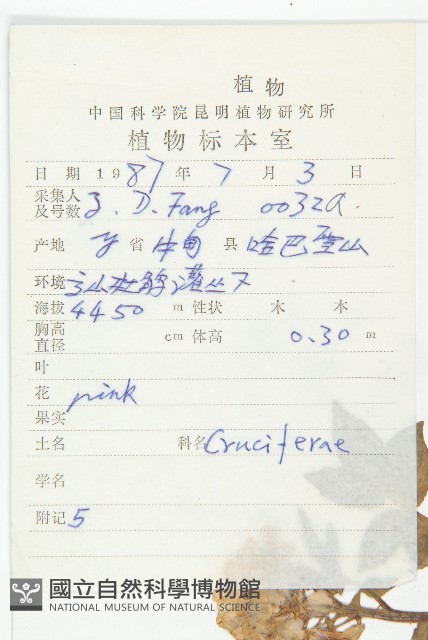 植物
中国科学院昆明植物研究所
植物标本室
日期 1987 年 7 月 3 日
采集人
及号数 Z. D. Fang 0032a.
产地 y 省 中甸 县 哈巴雪山
环境 灌丛下
海拔 4450 m 性状 木 本
胸高
直径 cm 体高 0.30 m
叶
花 pink
果实
土名 科名 Cruciferae
学名
附记 5
國立自然科學博物館
NATIONAL MUSEUM OF NATURAL SCIENCE